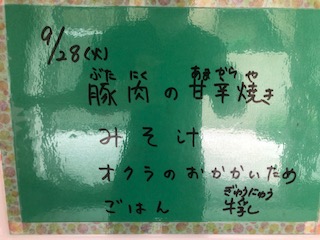 9/28(火)
ぶた にく あま から や
豚肉の甘辛焼き
みそ汁
オクラのおかかいため
ぎゅうにゅう
ごはん 牛乳